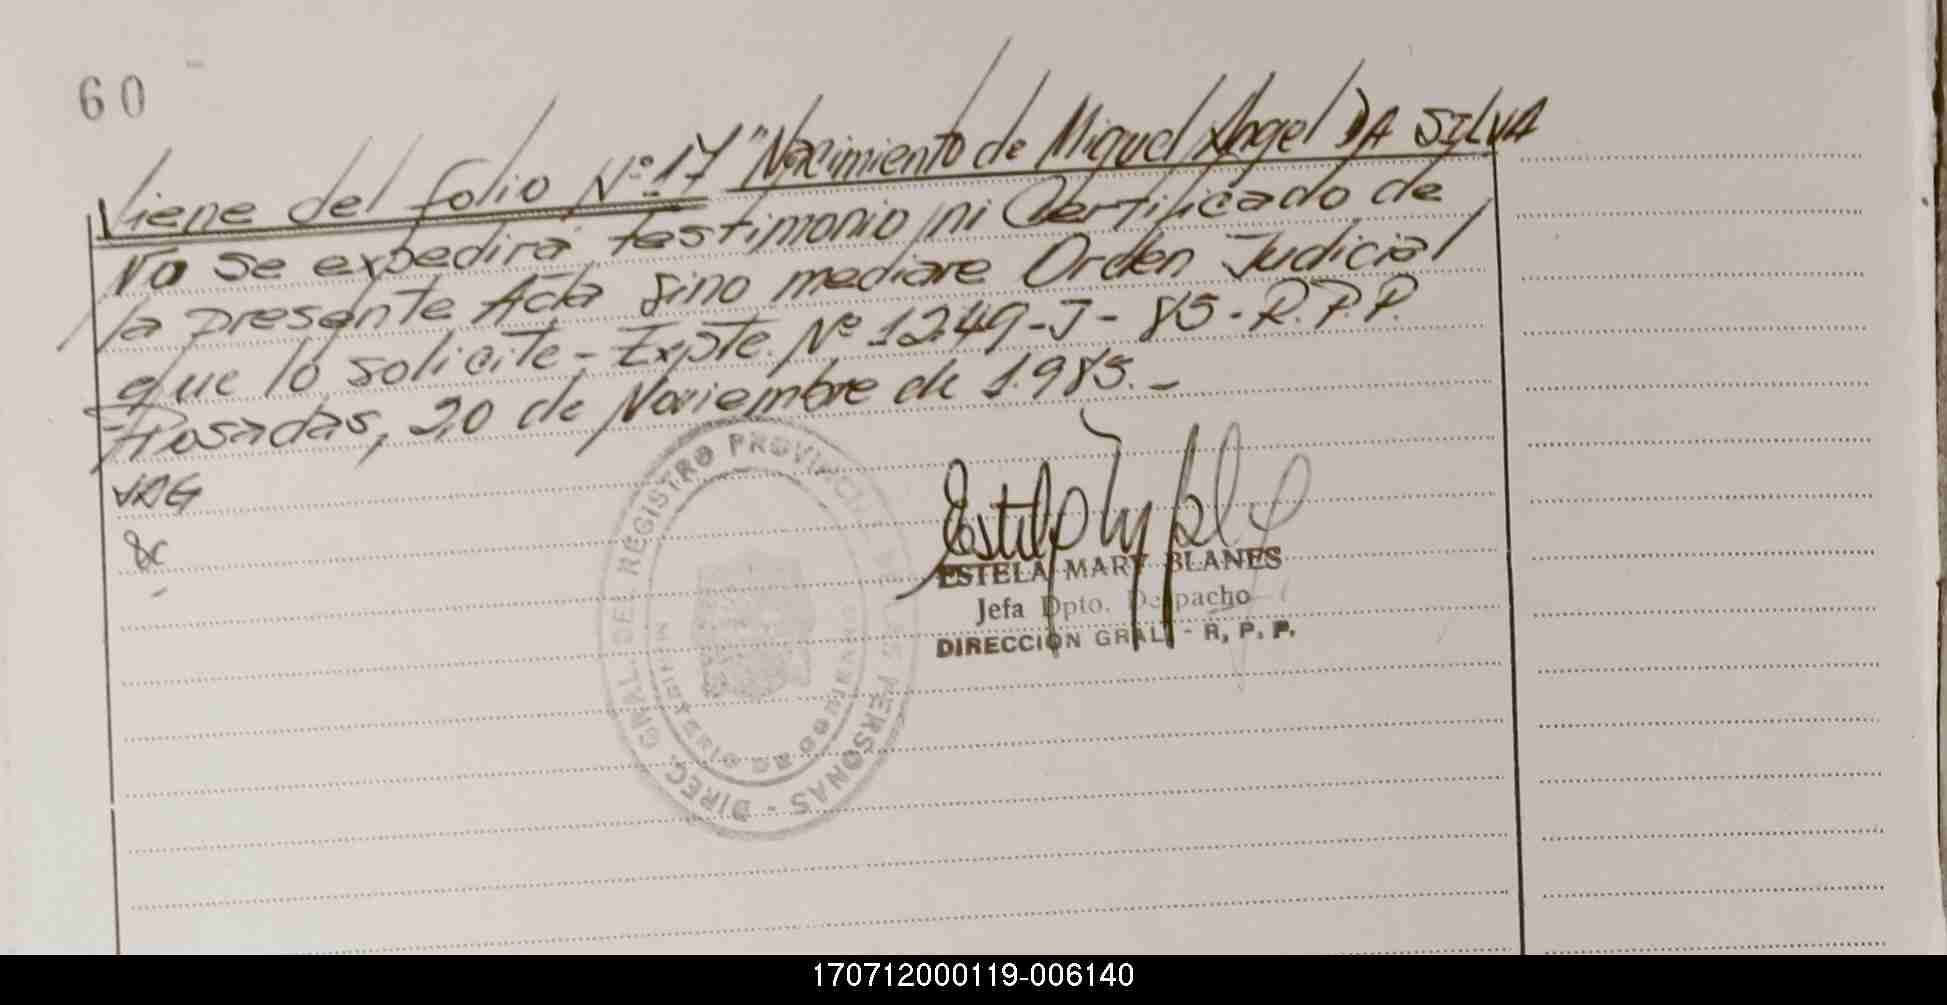 60
Viene del folio Nº 17 "Nacimiento de Miguel Angel DA SILVA
No se expedirá testimonio ni Certificado de
la presente Acta sino mediare Orden Judicial
que lo solicite - Expte. Nº 1249-J-85-R.P.P.
Posadas, 20 de Noviembre de 1985.-
VAG
DIREC. GRAL. DEL REGISTRO PROVINCIAL DE LAS PERSONAS -
ESTELA MARY BLANES
Jefa Dpto. Despacho
DIRECCION GRAL. - R. P. P.
170712000119-006140